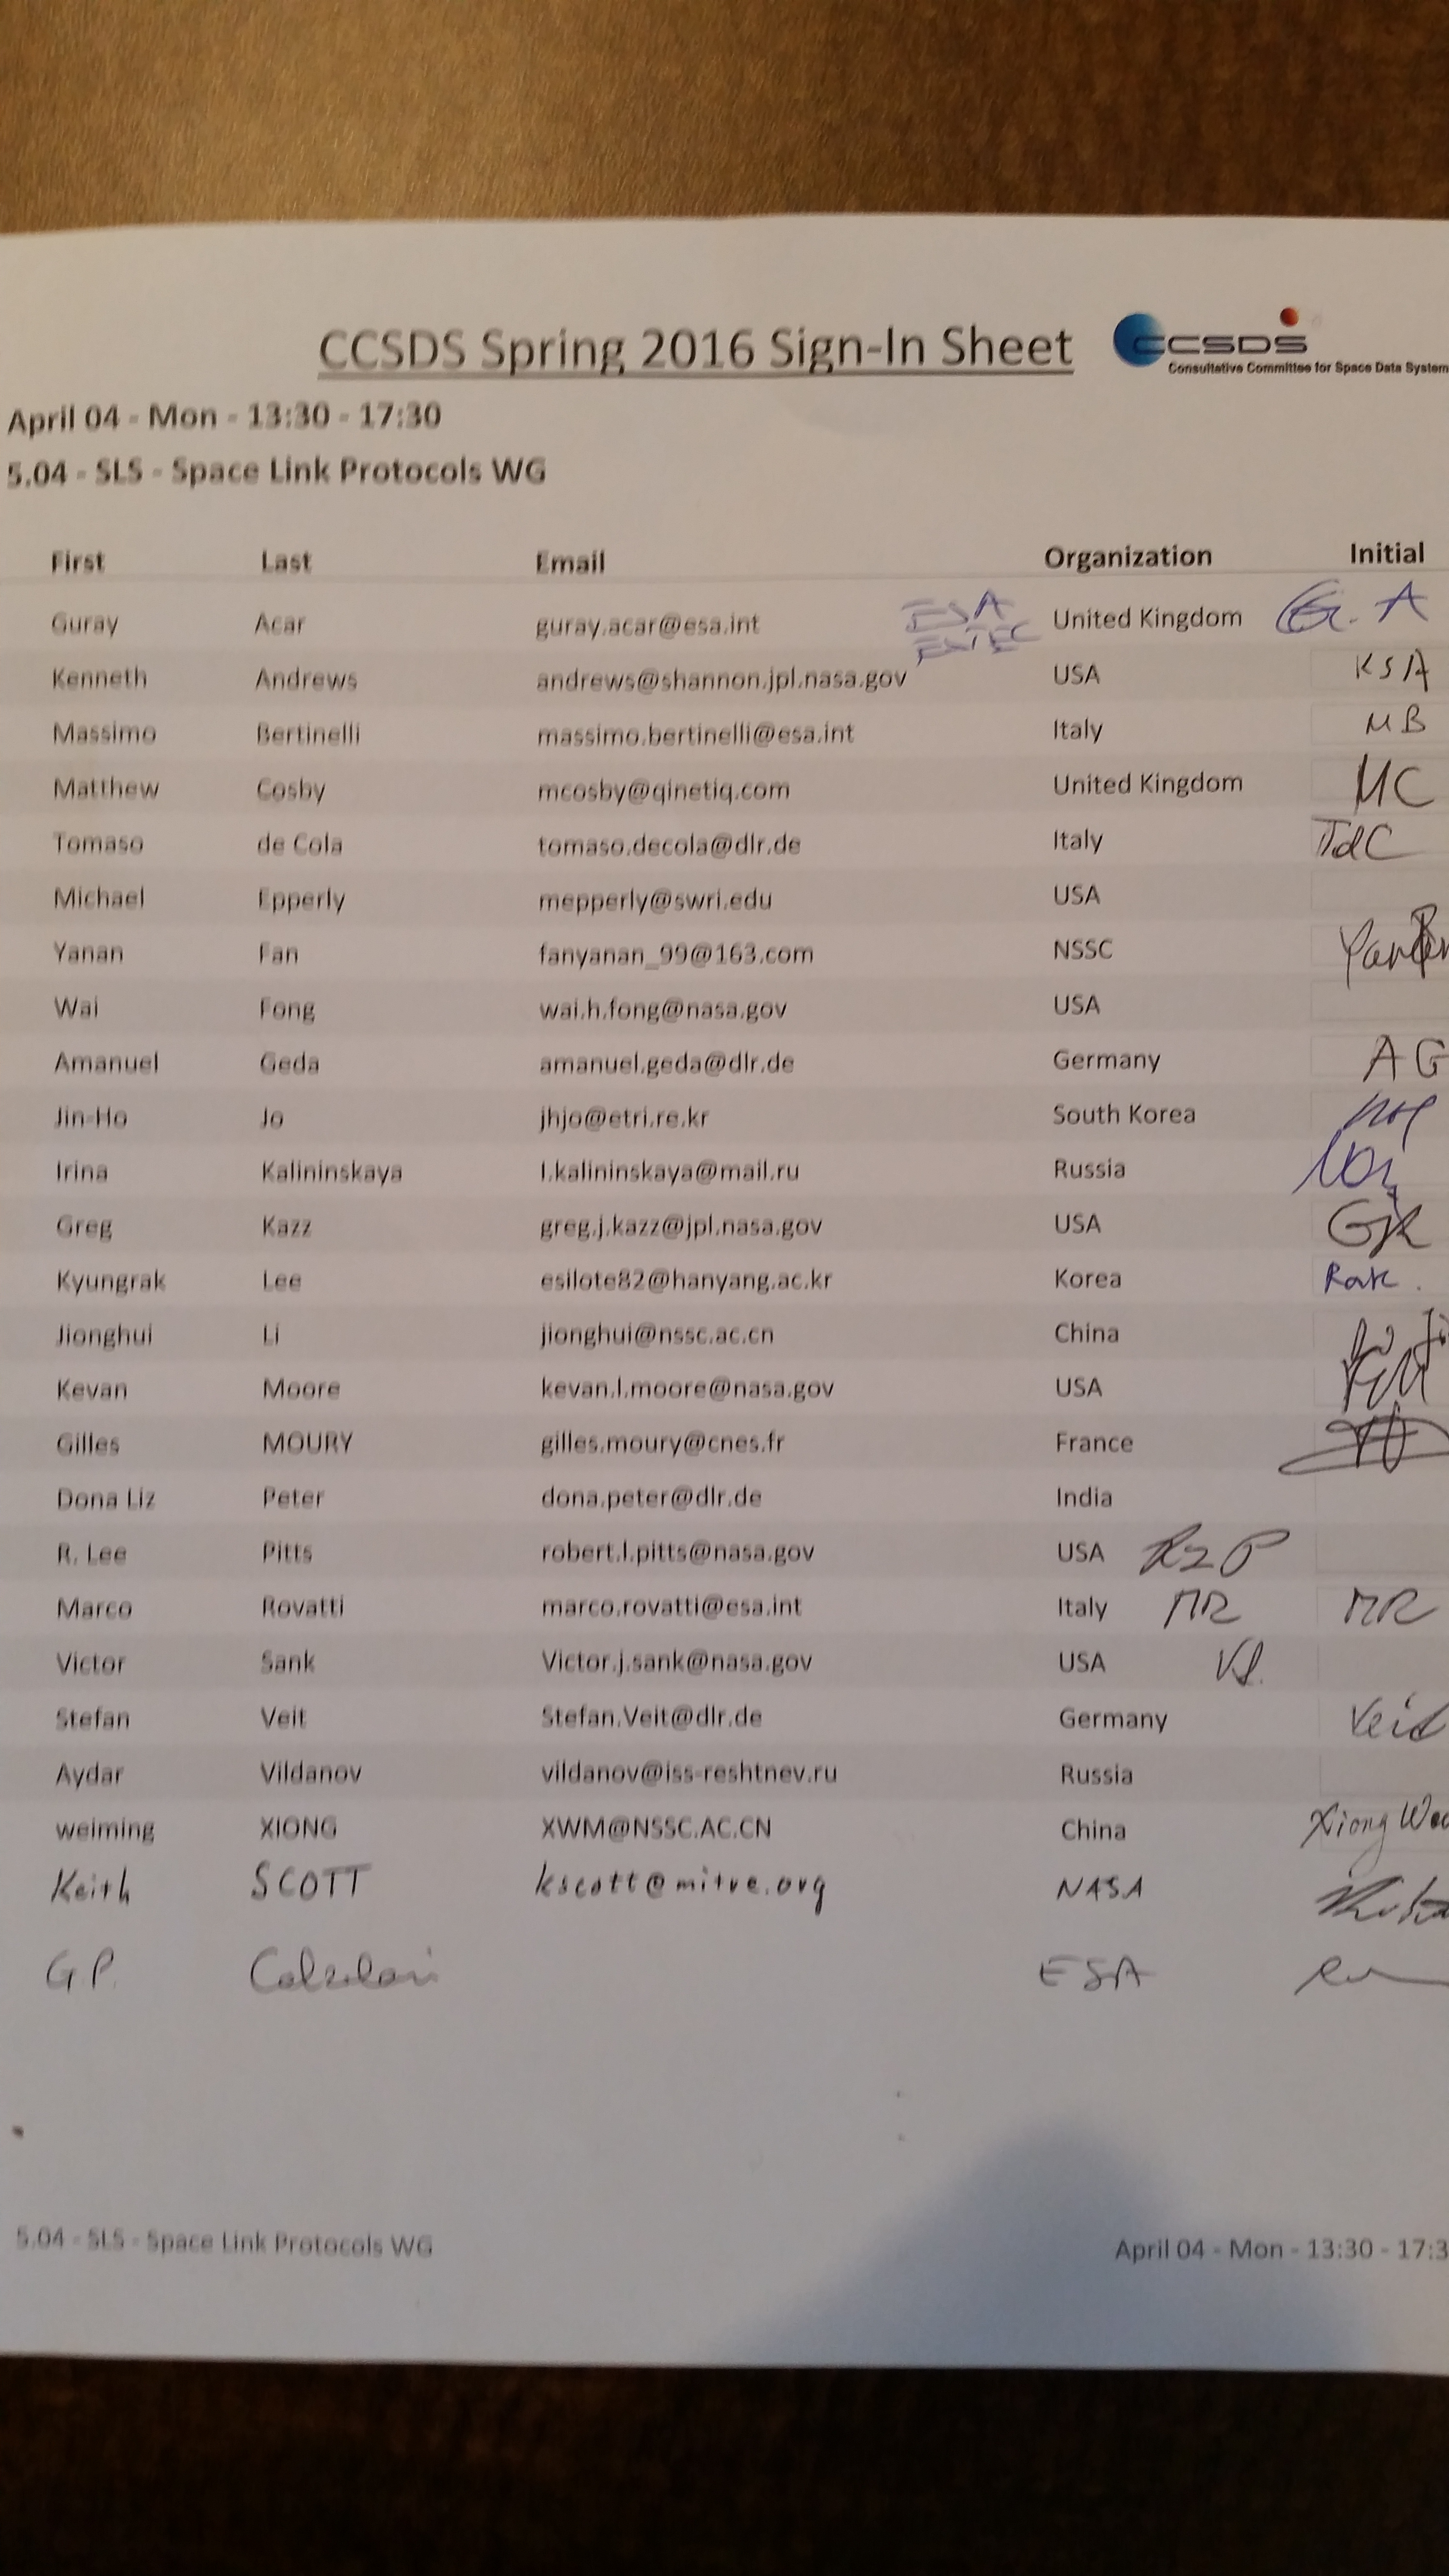 CCSDS Spring 2016 Sign-In Sheet
CCSDS
Consultative Committee for Space Data System
April 04 - Mon - 13:30 - 17:30
5.04 - SLS - Space Link Protocols WG
First Last Email Organization Initial
Guray Acar guray.acar@esa.int ESA ESTEC United Kingdom G. A
Kenneth Andrews andrews@shannon.jpl.nasa.gov USA KSA
Massimo Bertinelli massimo.bertinelli@esa.int Italy MB
Matthew Cosby mcosby@qinetiq.com United Kingdom MC
Tomaso de Cola tomaso.decola@dlr.de Italy TdC
Michael Epperly mepperly@swri.edu USA
Yanan Fan fanyanan_99@163.com NSSC
Wai Fong wai.h.fong@nasa.gov USA
Amanuel Geda amanuel.geda@dlr.de Germany AG
Jin-Ho Jo jhjo@etri.re.kr South Korea
Irina Kalininskaya I.kalininskaya@mail.ru Russia
Greg Kazz greg.j.kazz@jpl.nasa.gov USA GJK
Kyungrak Lee esilote82@hanyang.ac.kr Korea Rak.
Jionghui Li jionghui@nssc.ac.cn China
Kevan Moore kevan.l.moore@nasa.gov USA
Gilles MOURY gilles.moury@cnes.fr France
Dona Liz Peter dona.peter@dlr.de India
R. Lee Pitts robert.l.pitts@nasa.gov USA RLP
Marco Rovatti marco.rovatti@esa.int Italy MR MR
Victor Sank Victor.j.sank@nasa.gov USA VS.
Stefan Veit Stefan.Veit@dlr.de Germany Veit
Aydar Vildanov vildanov@iss-reshtnev.ru Russia
weiming XIONG XWM@NSSC.AC.CN China Xiong
Keith SCOTT kscott@mitre.org NASA
G P. Calzolari ESA
5.04 - SLS - Space Link Protocols WG April 04 - Mon - 13:30 - 17:3